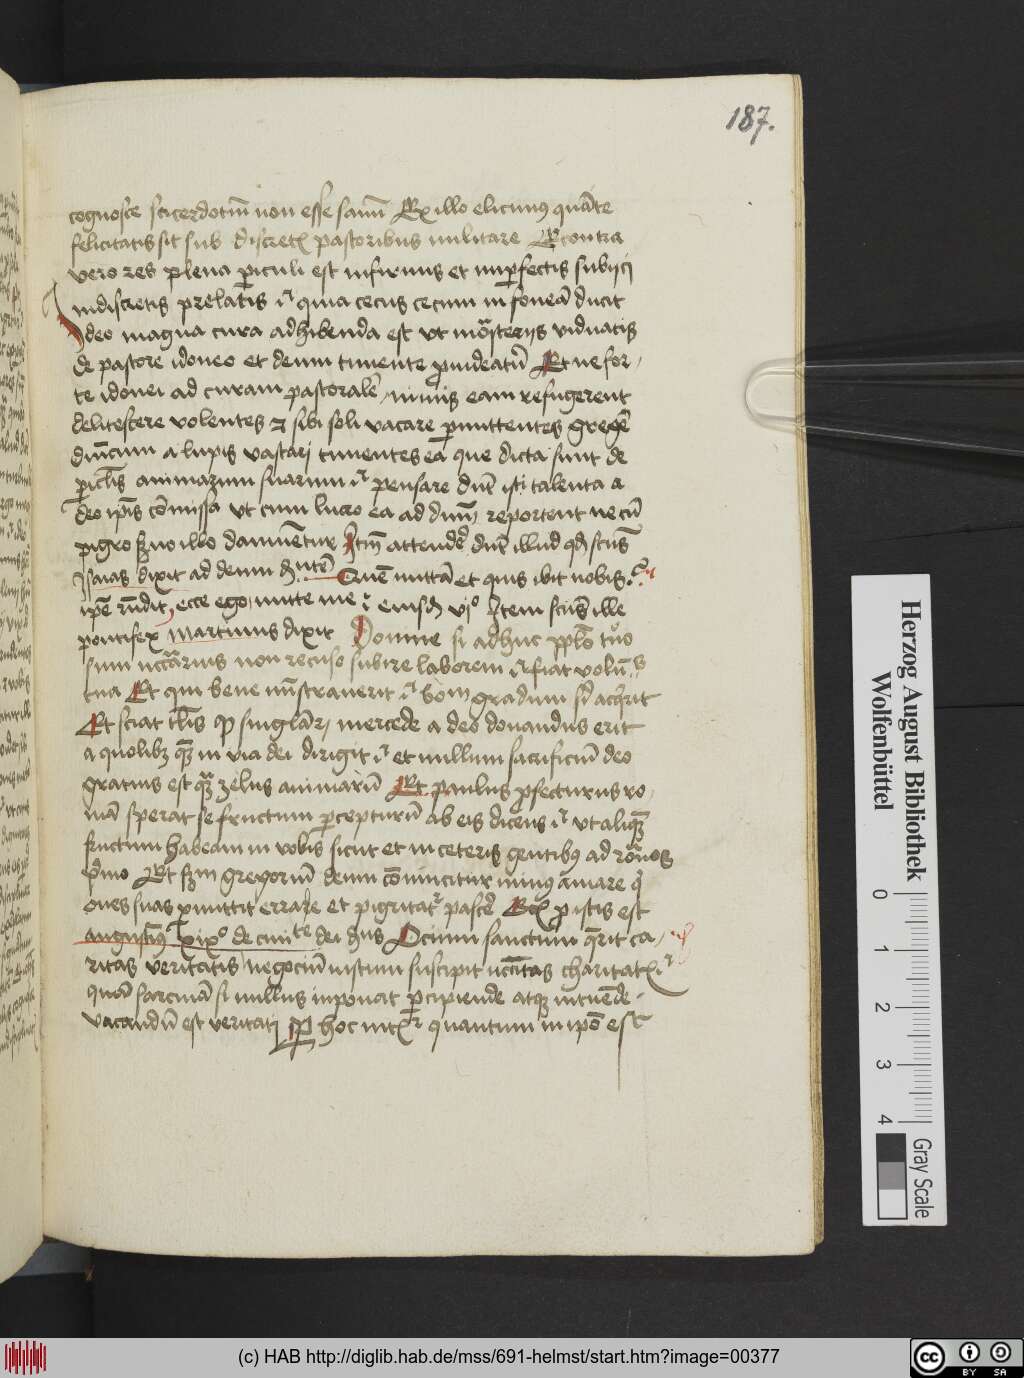 187.
cognosce sacerdotm non esse sanu Ex illo elicimus quante
felicitatis sit sub discretis pastoribus militare Econtra
vero res plena piculi est infirmis et imperfectis subijci
indiscretis prelatis quia cecus cecum in foueam ducit
Ideo magna cura adhibenda est vt monasterijs viduatis
de pastore idoneo et deum timente prouideatur Et ne for-
te idonei ad curam pastoralem nimis eam refugerent
delitescere volentes et sibi soli vacare permittentes gregem
diuicum a lupis vastari timentes ea que dicta sunt de
periculis animarum suarum pensare debent isti talenta a
deo ipis comissa vt cum lucro ea ad dominum reportent ne cum
pigro seruo illo damnentur Item attendere debent illud quod scus
Isaias dixit ad deum dicentem Quem mittam et quis ibit nobis
ipse respondit ecce ego mitte me eiusdem vi° Item scus ille
pontifex martinus dixit Domine si adhuc pplo tuo
sum necessarius non recuso subire laborem fiat voluntas
tua Et qui bene ministrauerit bonum gradum sibi acquirit
Et sciat talis quod singulari mercede a deo donandus erit
a quolibet quem in via dei dirigit et nullum sacrificium deo
gratius est quam zelus animarum Et paulus profecturus ro-
mam sperat se fructum percepturum ab eis dicens vt aliquem
fructum habeam in vobis sicut et in ceteris gentibus ad romanos
primo Et secundum gregorium deum conuincitur minus amare qui
oues suas permittit errare et pigritatur pascere pro istis est
augustinus xix° de ciuitate dei dicens Ocium sanctum querit ca-
ritas veritatis negocium iustum suscipit necessitas charitatis
quam sarcinam si nullus inponat percipiende atque intuende
vacandum est veritati Per hoc quantum in ipso est
Herzog August Bibliothek
Wolfenbüttel
0 1 2 3 4
Gray Scale
(c) HAB http://diglib.hab.de/mss/691-helmst/start.htm?image=00377
cc BY SA